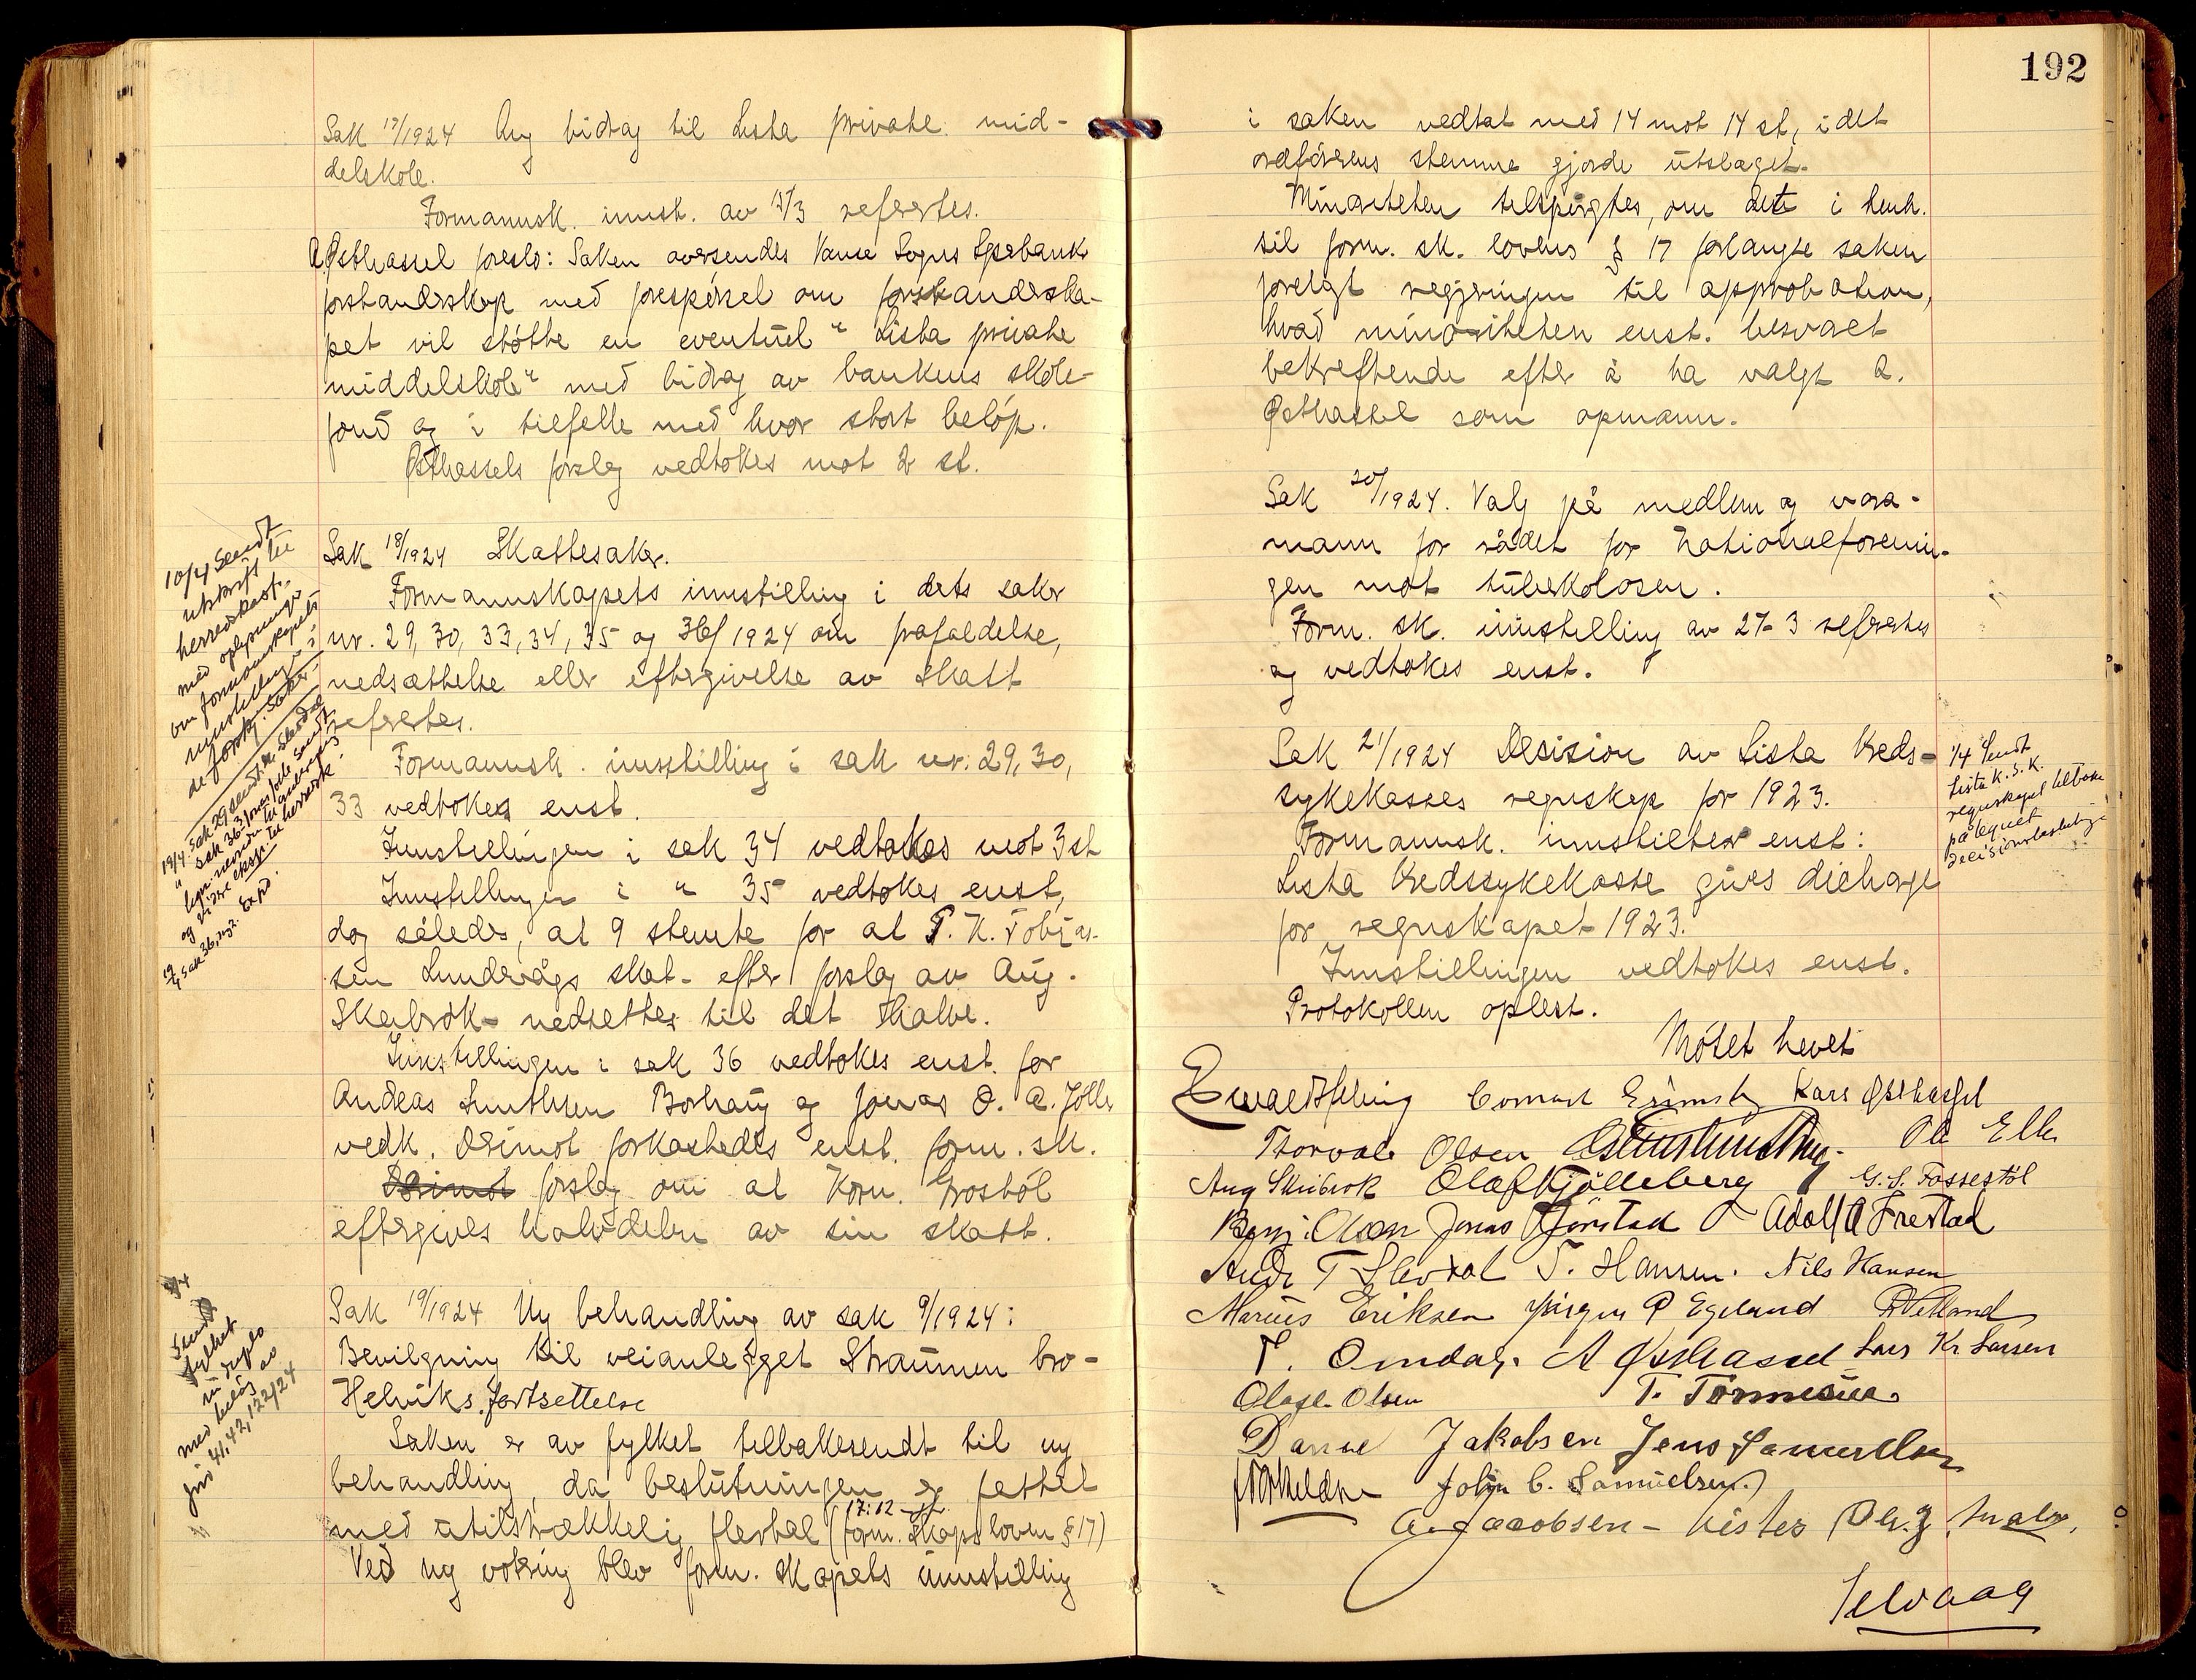 Sak 17/1924 Ang bidrag til Lista private mid-
delskole.
Formannsk. innst. av 17/3 refertes.
A Østhassel foreslo: Saken oversendes Vanse Sogns Sparebank
forstanderskap med forespørsel om forstanderska-
pet vil støtte en eventuel "Lista private
middelskole" med bidrag av bankens skole-
fond og i tilfelle med hvor stort beløp.
Østhassels forslag vedtokes mot 2 st.
10/4 Sendt
utskrift til
herredskasf.
med oplysning
om formannskapets
innstilling i
de forkj. saker.
Sak 18/1924 Skattesaker.
Formannskapets innstilling i dets saker
nr. 29, 30, 33, 34, 35 og 36/1924 om frafaldelse,
nedsættelse eller eftergivelse av skatt
refertes.
Formannsk. innstilling i sak nr. 29, 30,
33 vedtokes enst.
Innstillingen i sak 34 vedtokes mot 3 st
Innstillingen i " 35 vedtokes enst,
dog således, at 9 stemte for at T. K. Tobias-
sen Lundevågs skat - efter forslag av Aug.
Skeibrok - nedsettes til det halve.
Innstillingen i sak 36 vedtokes enst. for
Andreas Knuthsen Borhaug og Jonas O. A. Jølle
vedk. Derimot forkastedes enst. form. sk.
Derimot forslag om at Korn. Grostøl
eftergives halvdelen av sin skatt.
Sendt
fylket
in duplo
med bilag
jnr 41, 42, 122/24
Sak 19/1924 Ny behandling av sak 9/1924:
Bevilgning til veianlegget Straumen bro-
Helviks fortsettelse
Saken er av fylket tilbakesendt til ny
behandling, da beslutningen er fettet
17:12 st.
med utilstrækkelig flertal (form. skapsloven § 17)
Ved ny votring blev form. skapets innstilling
192
i saken vedtat med 14 mot 14 st, idet
ordførerens stemme gjorde utslaget.
Minoriteten tilspurgtes, om det i henh.
til form. sk. lovens § 17 forlangte saken
forelagt regjeringen til approbation,
hvad minoriteten enst. besvaret
bekreftende efter å ha valgt A.
Østhassel som opmann.
Sak 20/1924. Valg på medlem og vara-
mann for rådet for Nationalforenin-
gen mot tuberkolosen.
Form. sk. innstilling av 27-3 refertes
og vedtokes enst.
Sak 21/1924 Desision av Lista Kreds-
sykekasses regnskap for 1923.
Formannsk. innstilter enst:
Lista Kredssykekasse gives dicharge
for regnskapet 1923.
Innstillingen vedtokes enst.
1/4 Sendt
Lista K.S.K.
regnskapet tilbake
påtegnet
Protokollen oplest.
Møtet hevet
Kare Østhassel
Thorvald Olsen Ole Elle
Aug Skeibrok Olaf Kjølleberg G. S. Tossestøl
Benj. Olsen Jonas Adolf A Frestad
T. Hansen. Nils Hansen
Marius Eriksen Jørgen P Egeland
T. Omdal. A Østhassel Lars Kr Larsen
Olaf Olsen T.
Daniel Jakobsen Jens Samuelsen
John C. Samuelsen
A. Jacobsen - Vistes
Selvaag